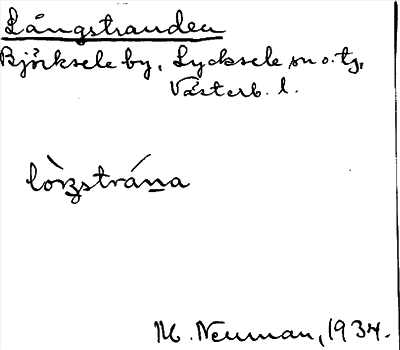 Långstranden
Björksele by, Lycksele sn o. tg,
Västerb. l.
lòṉstrána̱
M. Neuman, 1934.